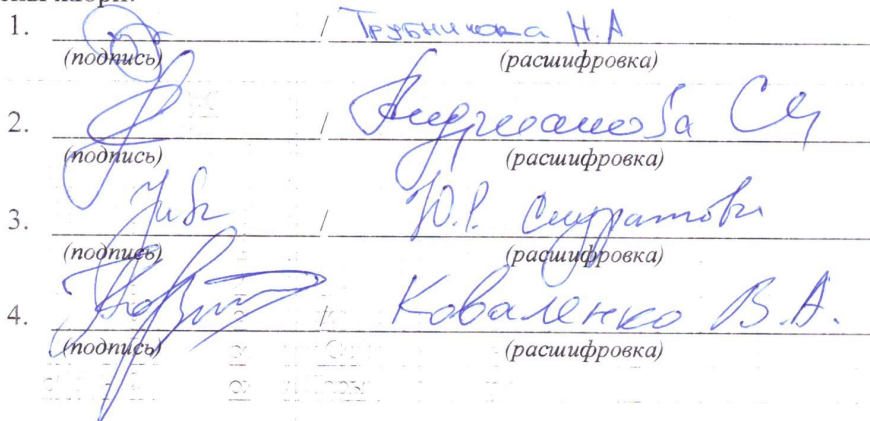 1. / Трубникова Н.А
(подпись) (расшифровка)
2. / Андрианова
(подпись) (расшифровка)
3. / Ю.Р.
(подпись) (расшифровка)
4. / Коваленко В.А.
(подпись) (расшифровка)